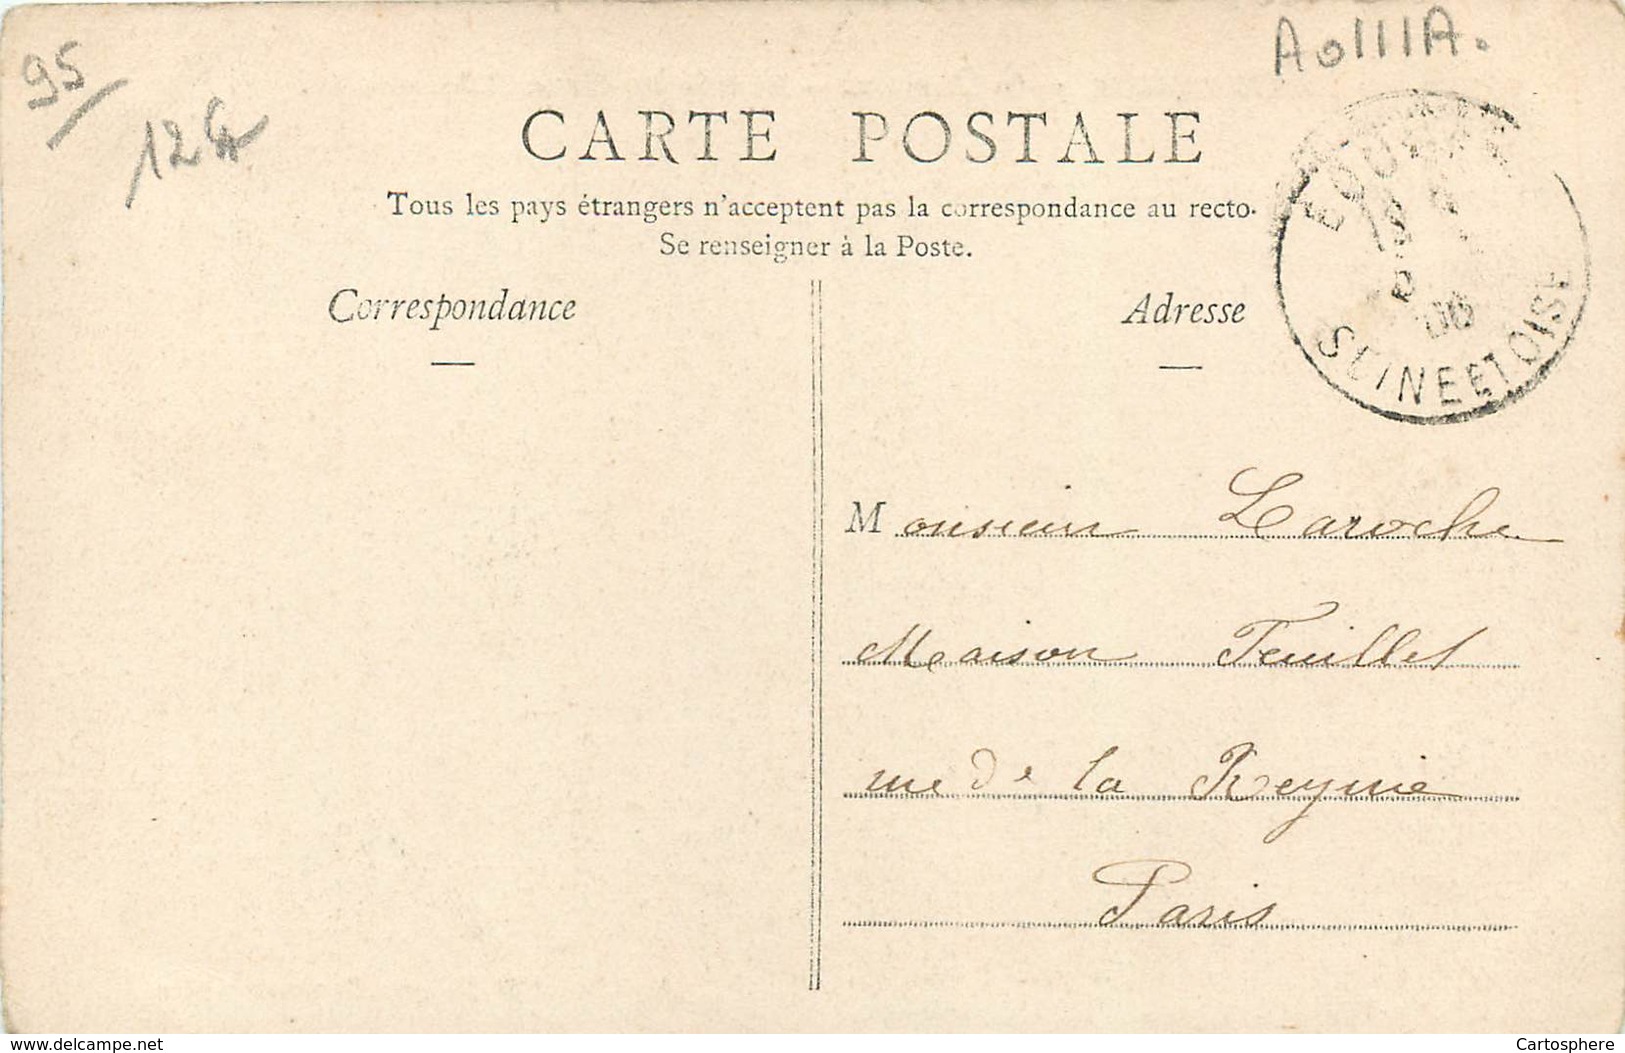 95
AolllA.
124
CARTE POSTALE
Tous les pays étrangers n'acceptent pas la correspondance au recto.
Se renseigner à la Poste.
Correspondance
Adresse
06
SEINE ET OISE
Monsieur Laroche
Maison Feuillet
rue de la Reynie
Paris
www.delcampe.net
Cartosphere